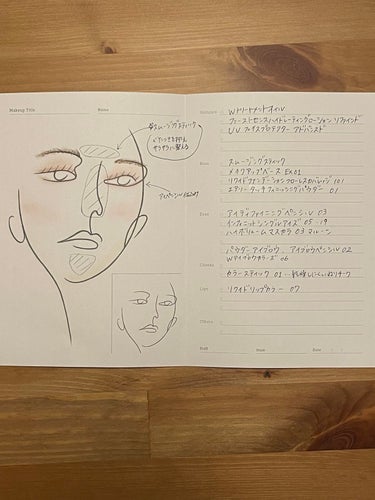 Makeup Title
Name
☆スムージングスティック
ベタつきを抑え
サラサラに整える
Skincare
Wトリートメントオイル
ファーストセンスハイドレーティングローション リファインド
UV フェイスプロテクター アドバンスド
Base
スムージングスティック
メイクアップベース EX01
リクイドファンデーション フローレスカバレッジ 101
エアリータッチ フィニッシングパウダー 01
Eyes
アイディファイニングペンシル 03
インフィニットシングルアイズ 05 19
ハイボリュームマスカラ 03 マルーン
パウダーアイブロウ、アイブロウペンシル 02
Wアイブロウカラーズ 06
Cheeks
カラースティック 01
Lips
リクイドリップカラー 07
Others
Staff
Store
Date